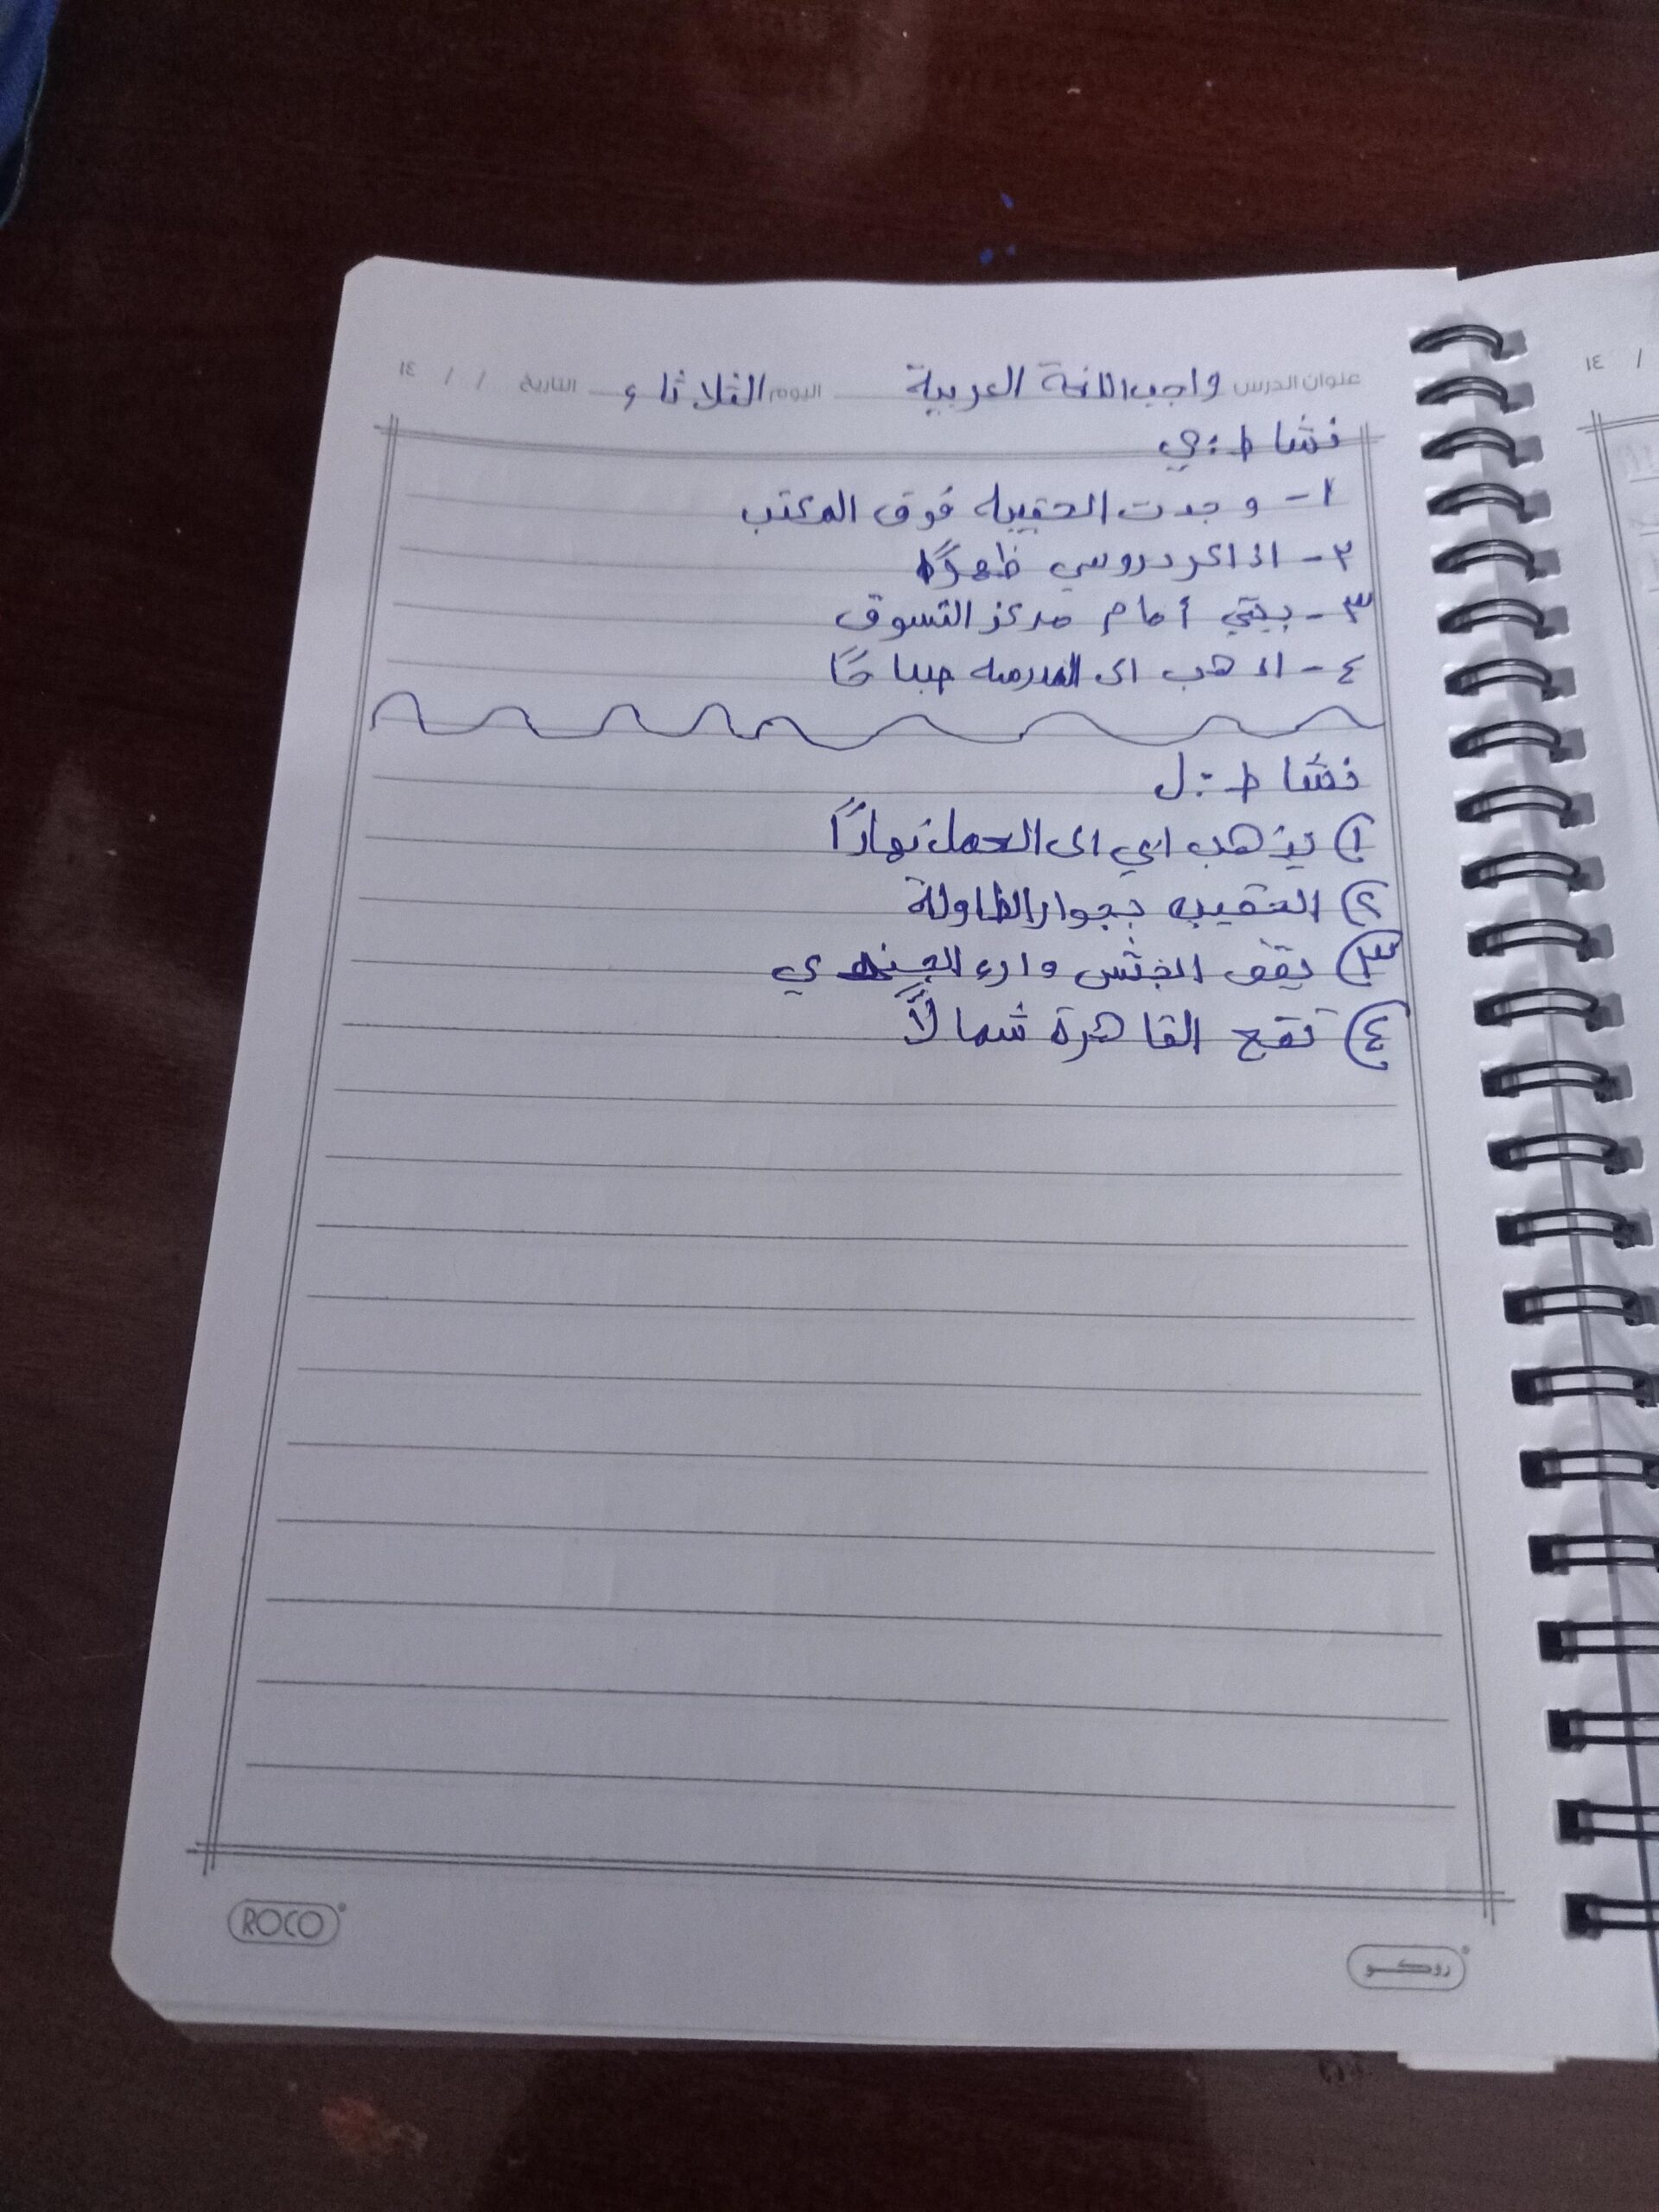 عنوان الدرس واجب اللغة العربية اليوم الثلاثاء التاريخ / / ١٤
نشاط: ي
١- وجدت الحقيبه فوق المكتب
٢- اذاكر دروسي ظهرًا
٣- بيتي أمام مركز التسوق
٤- اذهب الى المدرسه صباحًا
نشاط: ل
١) يذهب ابي الى العمل نهارًا
٢) الحقيبه بجوار الطاولة
٣) يقف وارء الجندي
٤) تقع القاهرة شمالاً
ROCO
روكو
/ ١٤